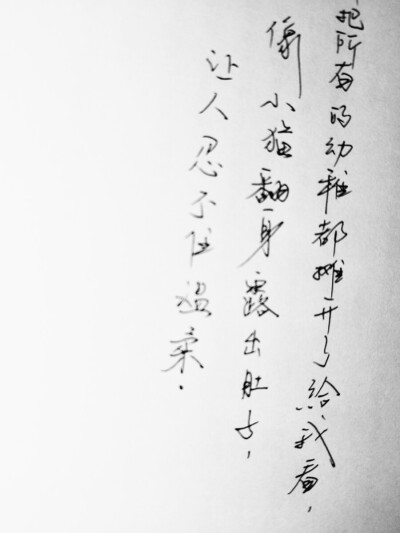 把所有的幼稚都摊开了给我看，
像小猫翻身露出肚子，
让人忍不住温柔.